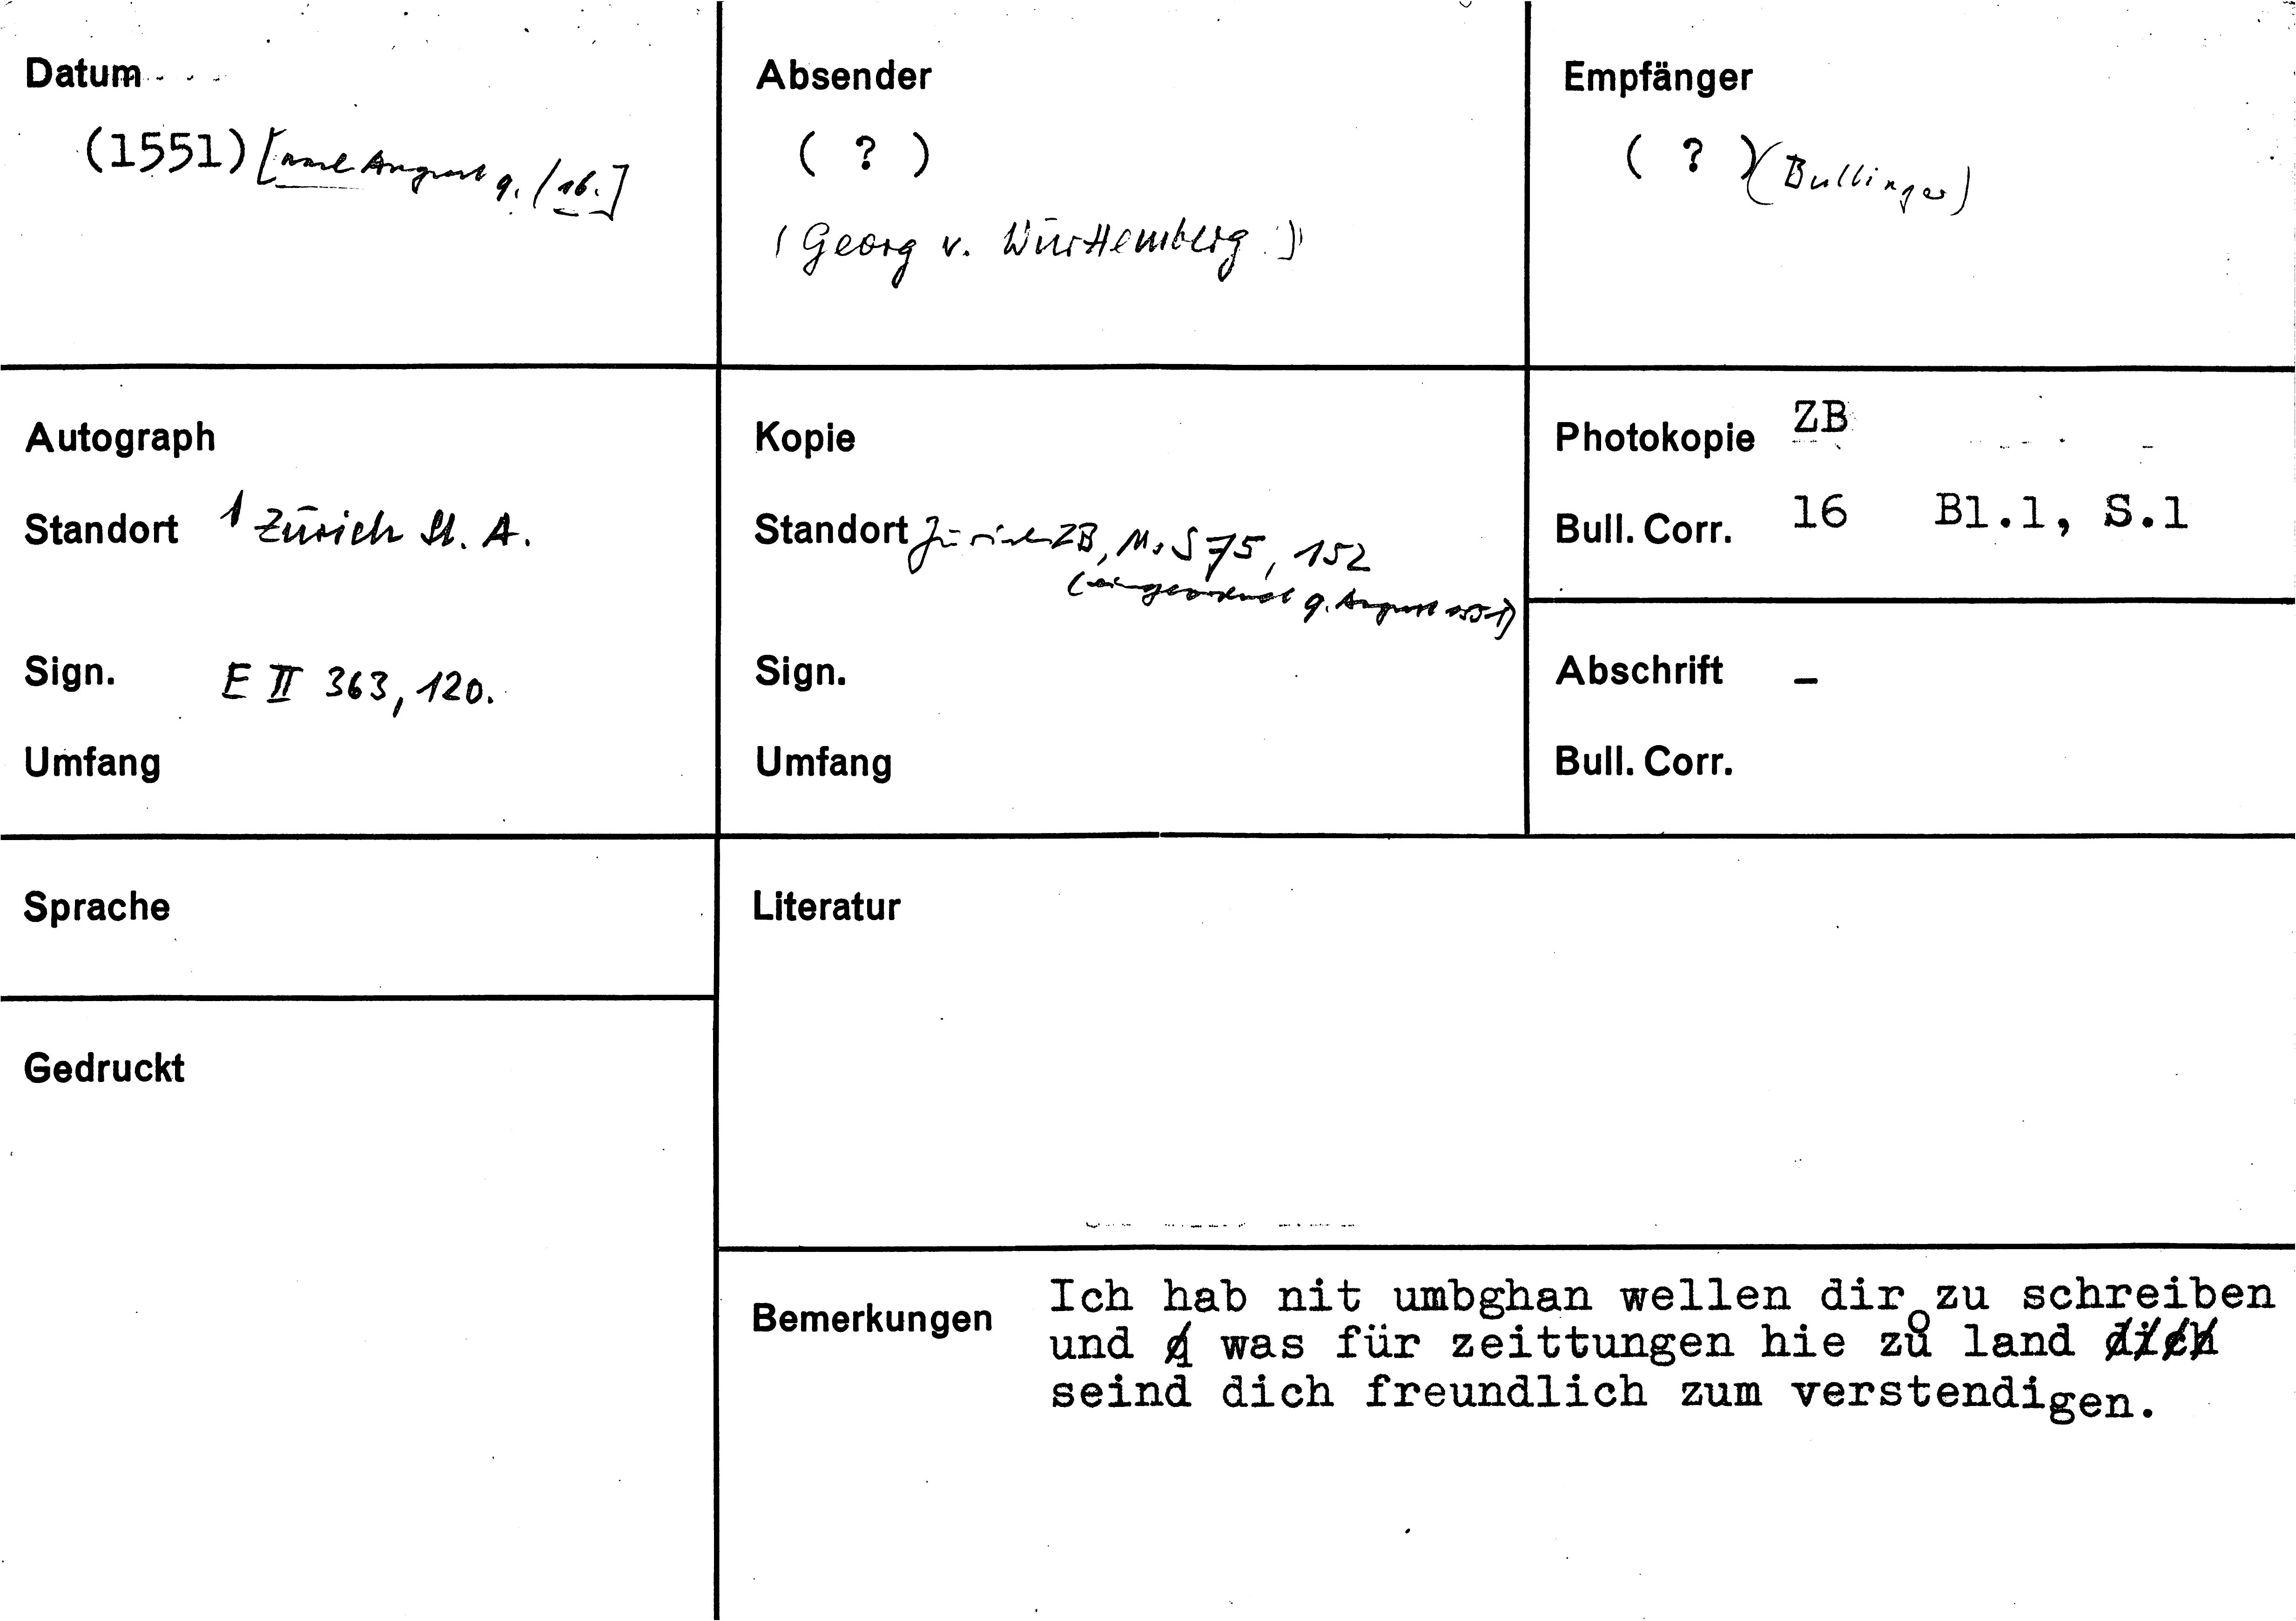 Datum
(1551) [nach August 9. / 16.]
Absender
( ? )
(Georg v. Württemberg)
Empfänger
( ? ) (Bullinger)
Autograph
Standort 1 Zürich St. A.
Sign. E II 363, 120.
Umfang
Kopie
Standort Zürich ZB, Ms S 75, 152
(eingeordnet 9. August 1551)
Sign.
Umfang
Photokopie ZB
Bull. Corr. 16 Bl.1, S.1
Abschrift –
Bull. Corr.
Sprache
Gedruckt
Literatur
Bemerkungen
Ich hab nit umbghan wellen dir zu schreiben
und d was für zeittungen hie zů land dich
seind dich freundlich zum verstendigen.